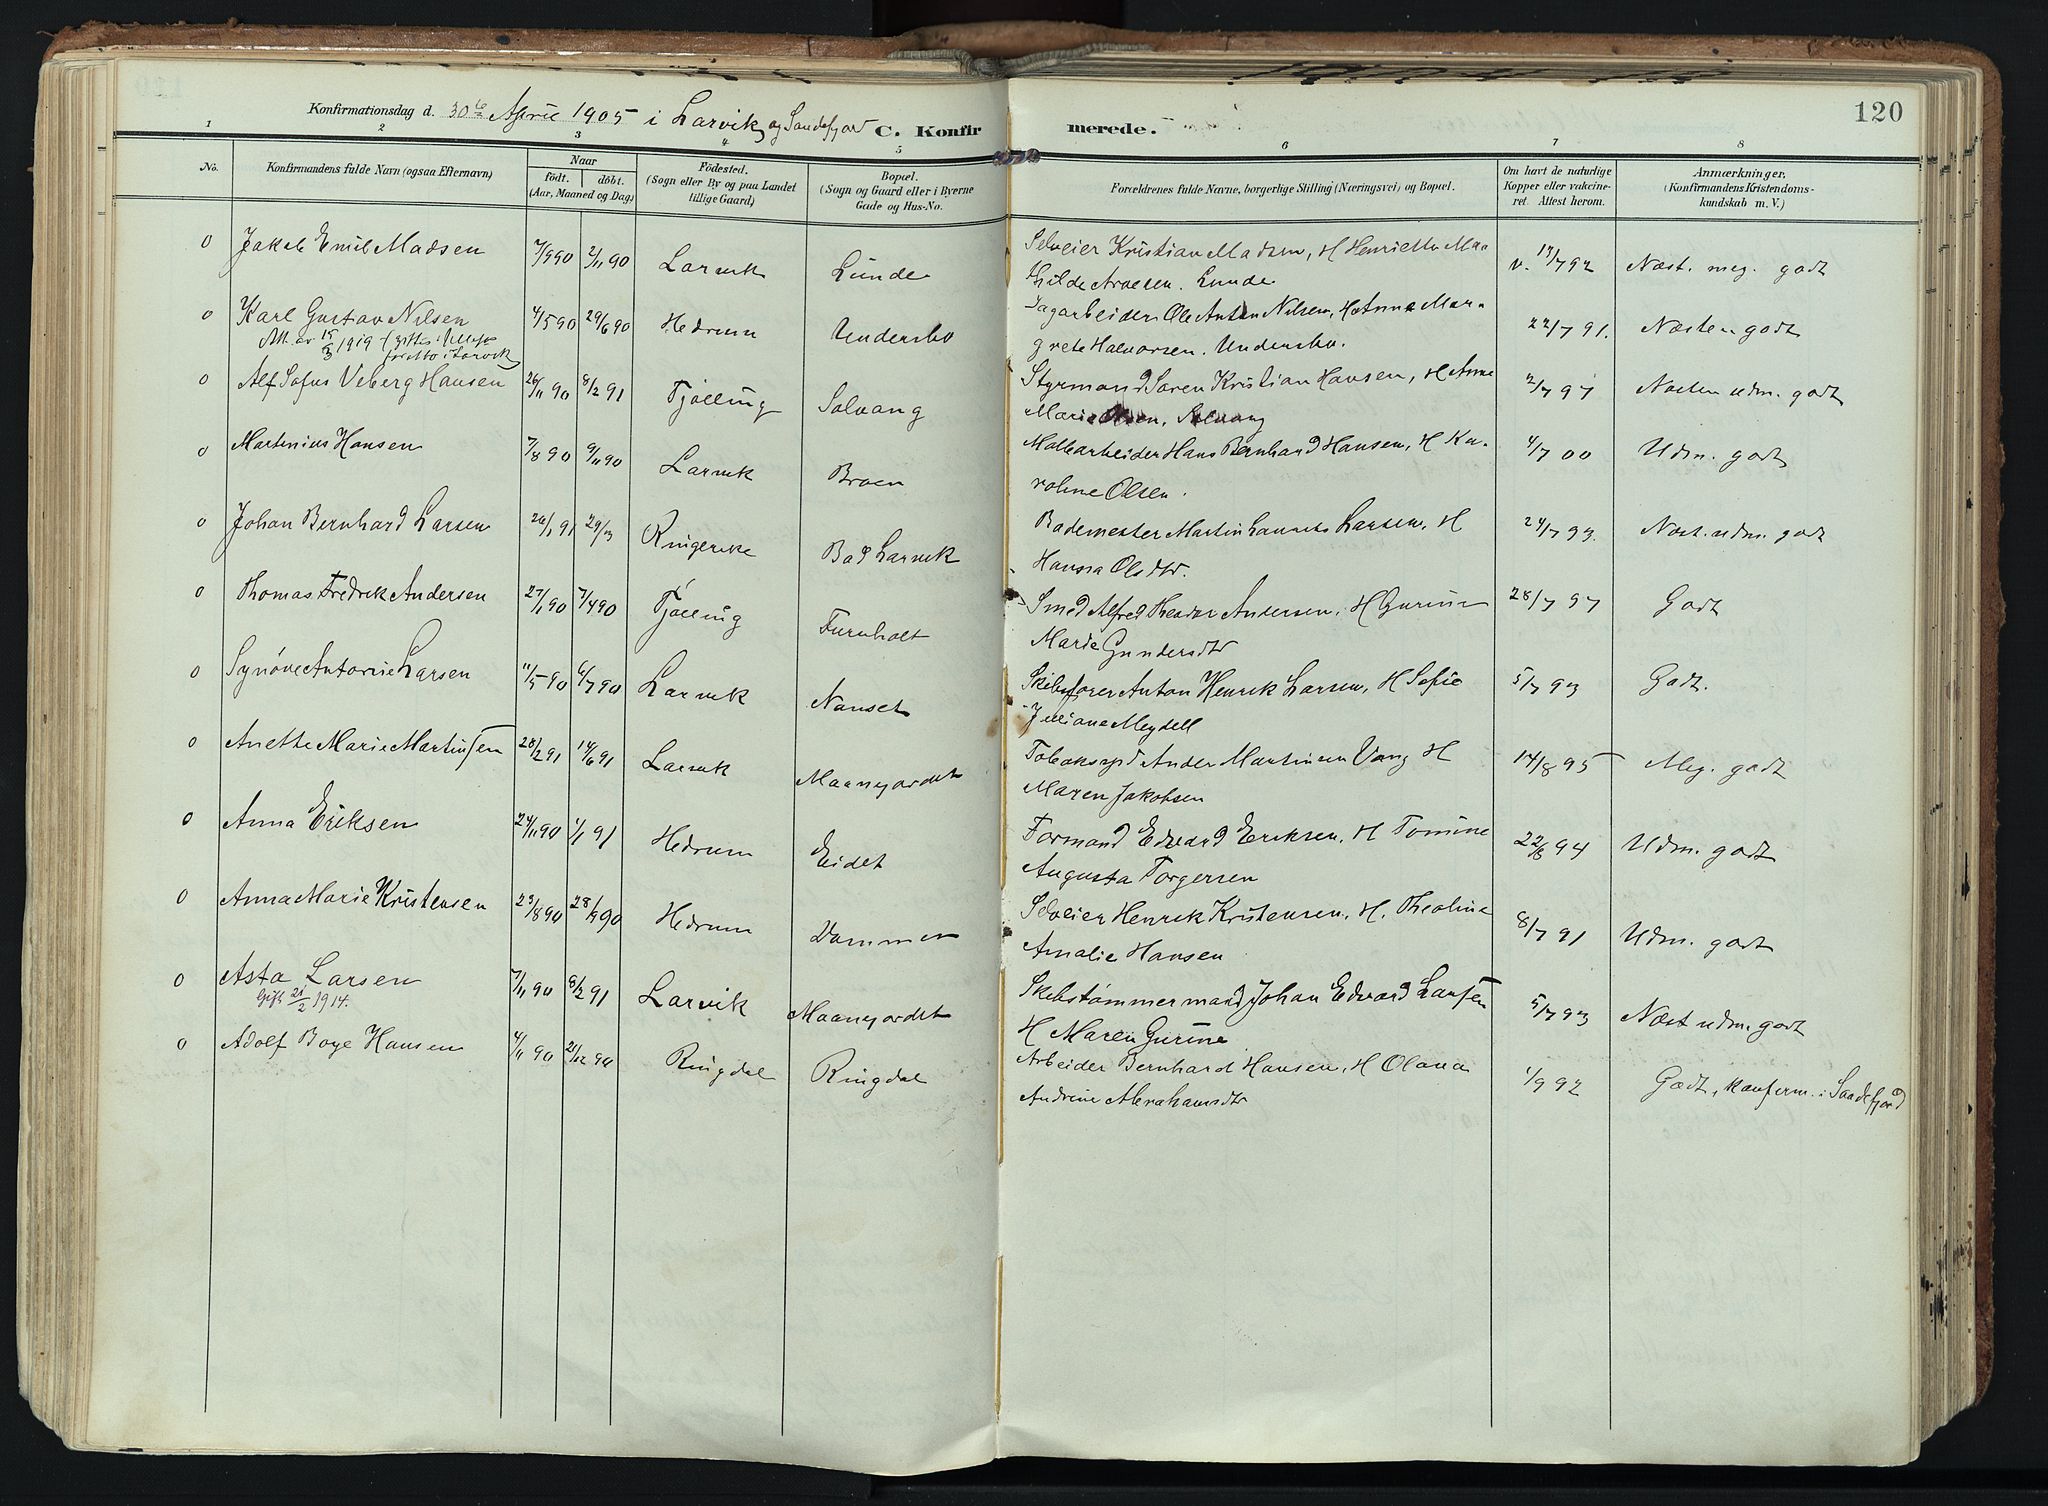 120
Konfirmationsdag d. 30te April 1905 i Larvik og Sandefjord
C. Konfirmerede.
1 2 3 4 5 6 7 8
No. Konfirmandens fulde Navn (ogsaa Efternavn) Naar födt. döbt. (Aar, Maaned og Dag) Födested. (Sogn eller By og paa Landet tillige Gaard) Bopæl. (Sogn og Gaard eller i Byerne Gade og Hus-No. Forældrenes fulde Navne, borgerlige Stilling (Næringsvei) og Bopæl. Om havt de naturlige Kopper eller vakcineret. Attest herom. Anmærkninger. (Konfirmandens Kristendomskundskab m. V.)
0 Jakob Emil Madsen 7/9 90 2/11 90 Larvik Lunde Selveier Kristian Madsen, H Henriette Ma
thilde Lunde v. 19/7 92 Næst. meg. godt
0 Karl Gustav Nilsen 4/5 90 29/6 90 Hedrum Undersbo Dagarbeider Ole Anton Nilsen, H Anne Mar-
grete Halvorsen. Undersbo. 22/7 91. Næsten godt
Att. av 15/3 1919 i Larvik
0 Alf Sofus Veberg Hansen 26/11 90 8/2 91 Tjølling Solvang Styrmand Søren Kristian Hansen, H Anne
Marie Olsen, Solvang 2/7 97 Næsten udm. godt
0 Martinius Hansen 7/8 90 9/11 90 Larvik Broen Hans Bernhard Hansen, H Ka-
roline Olsen. 4/7 00 Udm. godt
0 Johan Bernhard Larsen 26/1 91 29/3 Ringerike Bad Larvik Bademester Martin Laurits Larsen, H
Hansa Olsdtr. 24/7 93. Næst. udm. godt
0 Thomas Fredrik Andersen 27/1 90 7/4 90 Tjølling Furuholt Smed Alfred Theodor Andersen, H Gurine
Marie Gundersdtr 28/7 97 Godt
0 Synöve Antonie Larsen 11/5 90 6/7 90 Larvik Nanset Skibsfører Anton Henrik Larsen, H Sofie
Juliane Meydell 5/7 93 Godt.
0 Anette Marie Martinsen 28/2 91 14/6 91 Larvik Maanejordet Anders Martinsen Vang H
Maren Jakobsen 14/8 95 Meg. godt
0 Anna Eriksen 24/11 90 1/1 91 Hedrum Eidet Formand Edvard Eriksen, H Tomine
Augusta Torgersen 22/8 94 Udm. godt
0 Anna Marie Kristensen 23/8 90 28/9 90 Hedrum Dammen Selveier Henrik Kristensen, H. Theoline
Amalie Hansen 8/7 91 Udm. godt
0 Asta Larsen 7/11 90 8/2 91 Larvik Maanejordet Skibstømmermand Johan Edvard Larsen
Gift 21/2 1914. H Maren Gurine 5/7 93 Næst udm. godt
0 Adolf Boye Hansen 4/11 90 21/12 90 Ringdal Ringdal Arbeider Bernhard Hansen, H Olava
Andrine Abrahamsdtr 1/9 92 Godt, konfirm. i Sandefjord